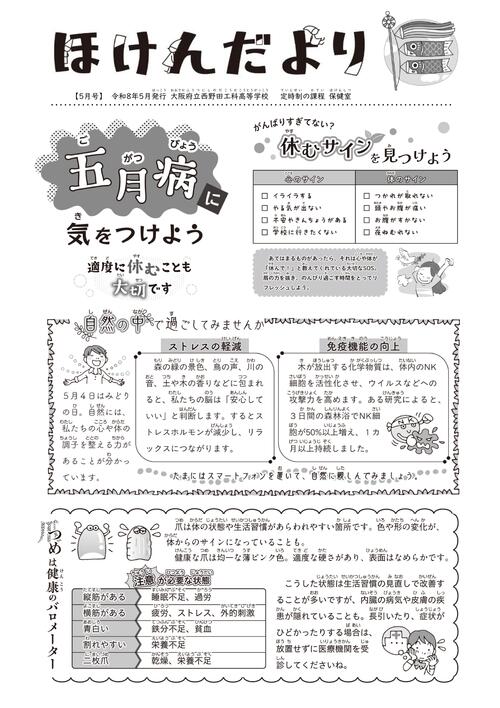 ほけんだより
【5月号】 令和8年5月発行 大阪府立西野田工科高等学校 定時制の課程 保健室
五月病に
気をつけよう
適度に休むことも
大切です
がんばりすぎてない?
休むサインを見つけよう
心のサイン
体のサイン
□ イライラする
□ つかれが取れない
□ やる気が出ない
□ 頭やお腹が痛い
□ 不安やきんちょうがある
□ お腹がすかない
□ 学校に行きたくない
□ 夜ねむれない
あてはまるものがあったら、それは心や体が
「休んで!」と教えてくれている大切なSOS。
肩の力を抜き、のんびり過ごす時間をとってリ
フレッシュしよう。
自然の中で過ごしてみませんか
5月4日はみどり
の日。自然には、
私たちの心や体の
調子を整える力が
あることが分かっ
ています。
ストレスの軽減
森の緑の景色、鳥の声、川の
音、土や木の香りなどに包まれ
ると、私たちの脳は「安心して
いい」と判断します。するとス
トレスホルモンが減少し、リラ
ックスにつながります。
免疫機能の向上
木が放出する化学物質は、体内のNK
細胞を活性化させ、ウイルスなどへの
攻撃力を高めます。ある研究によると、
3日間の森林浴でNK細
胞が50%以上増え、1カ
月以上持続しました。
NK
たまにはスマートフォンを置いて、自然に親しんでみましょう。
つめは健康のバロメーター
爪は体の状態や生活習慣があらわれやすい箇所です。色や形の変化が、
体からのサインになっていることも。
健康な爪は均一な薄ピンク色。適度な硬さがあり、表面はなめらかです。
注意が必要な状態
縦筋がある 睡眠不足、過労
横筋がある 疲労、ストレス、外的刺激
青白い 鉄分不足、貧血
割れやすい 栄養不足
二枚爪 乾燥、栄養不足
こうした状態は生活習慣の見直しで改善す
ることが多いですが、内臓の病気や皮膚の疾
患が隠れていることも。長引いたり、症状が
ひどかったりする場合は、
放置せずに医療機関を受
診してくださいね。